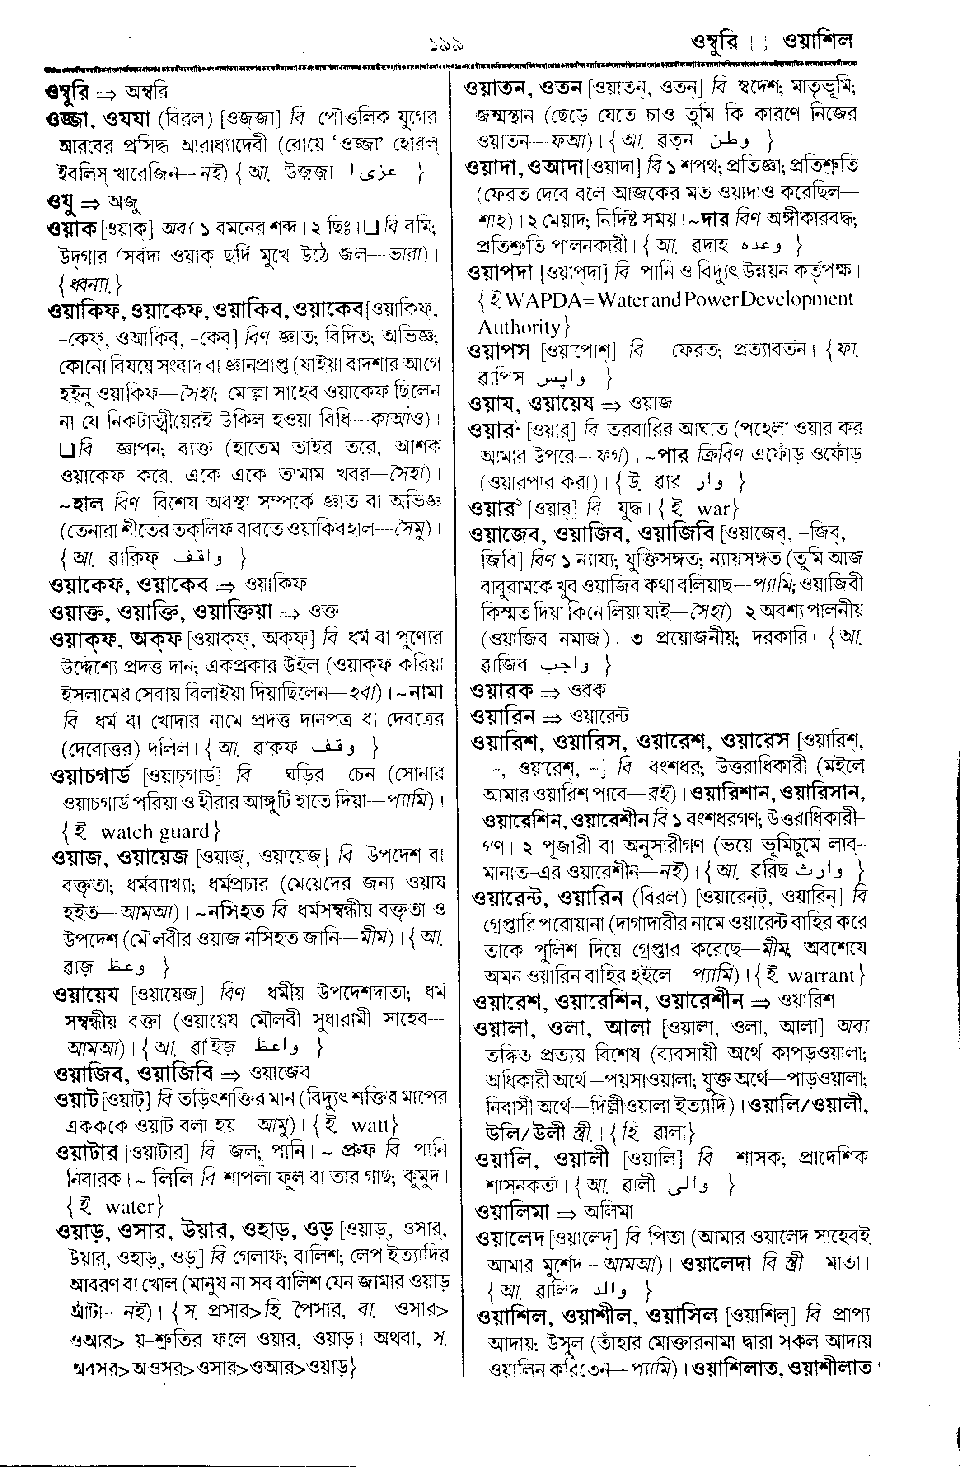 ১৯৯
ওম্বুরি || ওয়াশিল
ওম্বুরি ⇒ অম্বরি
ওজ্জা, ওযযা (বিরল) [ওজ্‌জা] বি পৌওলিক যুগের
আরবের প্রসিদ্ধ আরাধ্যদেবী (রোযে ‘ওজ্জা’ হোবল্
ইবলিস্ খারেজিন—নই) { আ. উজ্জা عزى }
ওযু ⇒ অজু
ওয়াক [ওয়াক্] অব্য ১ বমনের শব্দ। ২ ছিঃ। ❑ বি বমি;
উদ্‌গার (সর্বদা ওয়াক্ ছর্দি মুখে উঠে জল—ভারা)।
{ধ্বন্যা.}
ওয়াকিফ, ওয়াকেফ, ওয়াকিব, ওয়াকেব [ওয়াকিফ্,
-কেফ্, ওআকিব্, -কেব্] বিণ জ্ঞাত; বিদিত; অভিজ্ঞ;
কোনো বিষয়ে সংবাদ বা জ্ঞানপ্রাপ্ত (যাইয়া বাদশার আগে
হইনু ওয়াকিফ—সৈহা; মোল্লা সাহেব ওয়াকেফ ছিলেন
না যে নিকটাত্মীয়েরই উকিল হওয়া বিধি—কাআও)।
❑ বি জ্ঞাপন; ব্যক্ত (হাতেম তাইর তরে, আশক
ওয়াকেফ করে, একে একে তামাম খবর—সৈহা)।
~হাল বিণ বিশেষ অবস্থা সম্পর্কে জ্ঞাত বা অভিজ্ঞ
(তেনারা শীতের তক্‌লিফ বাবতে ওয়াকিবহাল—সৈমু)।
{আ. ৱাকিফ واقف }
ওয়াকেফ, ওয়াকেব ⇒ ওয়াকিফ
ওয়াক্ত, ওয়াক্তি, ওয়াক্তিয়া ⇒ ওক্ত
ওয়াক্‌ফ, অক্‌ফ [ওয়াক্‌ফ্, অক্‌ফ্] বি ধর্ম বা পুণ্যের
উদ্দেশ্যে প্রদত্ত দান; একপ্রকার উইল (ওয়াক্‌ফ করিয়া
ইসলামের সেবায় বিলাইয়া দিয়াছিলেন—হবা)। ~নামা
বি ধর্ম বা খোদার নামে প্রদত্ত দানপত্র বা দেবত্রের
(দেবোত্তর) দলিল। { আ. ৱক্‌ফ وقف }
ওয়াচগার্ড [ওয়াচ্‌গার্ড্] বি ঘড়ির চেন (সোনার
ওয়াচগার্ড পরিয়া ও হীরার আঙ্গুটি হাতে দিয়া—প্যামি)।
{ ই watch guard}
ওয়াজ, ওয়ায়েজ [ওয়াজ্, ওয়ায়েজ্] বি উপদেশ বা
বক্তৃতা; ধর্মব্যাখ্যা; ধর্মপ্রচার (মেয়েদের জন্য ওয়ায
হইত—আমআ)। ~নসিহত বি ধর্মসম্বন্ধীয় বক্তৃতা ও
উপদেশ (মৌলবীর ওয়াজ নসিহত জানি—মীম)। {আ.
ৱাজ় وعظ }
ওয়ায়েয [ওয়ায়েজ্] বিণ ধর্মীয় উপদেশদাতা; ধর্ম
সম্বন্ধীয় বক্তা (ওয়ায়েয মৌলবী সুধারামী সাহেব—
আমআ)। { আ. ৱাইজ় واعظ }
ওয়াজিব, ওয়াজিবি ⇒ ওয়াজেব
ওয়াট [ওয়াট্] বি তড়িৎশক্তির মান (বিদ্যুৎ শক্তির মাপের
একককে ওয়াট বলা হয় আমু)। { ই watt}
ওয়াটার [ওয়াটার্] বি জল; পানি। ~ প্রুফ বি পানি
নিবারক। ~ লিলি বি শাপলা ফুল বা তার গাছ; কুমুদ।
{ ই water}
ওয়াড়, ওসার, উয়ার, ওহাড়, ওড় [ওয়াড়্, ওসার্,
উয়ার্, ওহাড়্, ওড়্] বি গেলাফ; বালিশ; লেপ ইত্যাদির
আবরণ বা খোল (মানুয না সব বালিশ যেন জামার ওয়াড়
আঁটা—নই)। { স. প্রসার> হি. পৈসার, বা. ওসার>
ওআর> য়-শ্রুতির ফলে ওয়ার, ওয়াড়। অথবা, স.
অবসর> অওসর> ওসার> ওআর> ওয়াড়}
ওয়াতন, ওতন [ওয়াতন্, ওতন্] বি স্বদেশ; মাতৃভূমি;
জন্মস্থান (ছেড়ে যেতে চাও তুমি কি কারণে নিজের
ওয়াতন—ফআ)। { আ. ৱতন وطن }
ওয়াদা, ওআদা [ওয়াদা] বি ১ শপথ; প্রতিজ্ঞা; প্রতিশ্রুতি
(ফেরত দেবে বলে আজকের মত ওয়াদাও করেছিল—
শাহ)। ২ মেয়াদ; নির্দিষ্ট সময়। ~দার বিণ অঙ্গীকারবদ্ধ;
প্রতিশ্রুতি পালনকারী। { আ. ৱদাহ وعده }
ওয়াপদা [ওয়াপ্‌দা] বি পানি ও বিদ্যুৎ উন্নয়ন কর্তৃপক্ষ।
{ ই WAPDA = Water and Power Development
Authority}
ওয়াপস [ওয়াপোশ্] বি ফেরত; প্রত্যাবর্তন। {ফা.
ৱাপিস واپس }
ওয়ায, ওয়ায়েয ⇒ ওয়াজ
ওয়ার¹ [ওয়ার্] বি তরবারির আঘাত (পহেলা ওয়ার কর
আমার উপরে—ফগ)। ~পার ক্রিবিণ এফোঁড় ওফোঁড়
(ওয়ারপার করা)। { উ. ৱার وار }
ওয়ার² [ওয়ার্] বি যুদ্ধ। { ই war}
ওয়াজেব, ওয়াজিব, ওয়াজিবি [ওয়াজেব্, -জিব্,
জিবি] বিণ ১ ন্যায্য; যুক্তিসঙ্গত; ন্যায়সঙ্গত (তুমি আজ
বাবুরামকে খুব ওয়াজিব কথা বলিয়াছ—প্যামি; ওয়াজিবী
কিম্মত দিয়া কিনে লিয়া যাই—সৈহা) ২ অবশ্য পালনীয়
(ওয়াজিব নমাজ)। ৩ প্রয়োজনীয়; দরকারি। {আ.
ৱাজিব واجب }
ওয়ারক ⇒ ওরক
ওয়ারিন ⇒ ওয়ারেন্ট
ওয়ারিশ, ওয়ারিস, ওয়ারেশ, ওয়ারেস [ওয়ারিশ্,
-, ওয়ারেশ্, -] বি বংশধর; উত্তরাধিকারী (মইলে
আমার ওয়ারিশ পাবে—রই)। ওয়ারিশান, ওয়ারিসান,
ওয়ারেশিন, ওয়ারেশীন বি ১ বংশধরগণ; উত্তরাধিকারী-
গণ। ২ পূজারী বা অনুসারীগণ (ভয়ে ভূমিচুমে লাব-
মানাত-এর ওয়ারেশীন—নই)। { আ. ৱরিছ وارث }
ওয়ারেন্ট, ওয়ারিন (বিরল) [ওয়ারেন্‌ট্, ওয়ারিন্] বি
গ্রেপ্তারি পরোয়ানা (দাগাদারীর নামে ওয়ারেন্ট বাহির করে
তাকে পুলিশ দিয়ে গ্রেপ্তার করেছে—মীম, অবশেষে
অমন ওয়ারিন বাহির হইলে প্যামি)। { ই warrant}
ওয়ারেশ, ওয়ারেশিন, ওয়ারেশীন ⇒ ওয়ারিশ
ওয়ালা, ওলা, আলা [ওয়ালা, ওলা, আলা] অব্য
তদ্ধিত প্রত্যয় বিশেষ (ব্যবসায়ী অর্থে কাপড়ওয়ালা;
অধিকারী অর্থে—পয়সাওয়ালা; যুক্ত অর্থে—পাড়ওয়ালা;
নিবাসী অর্থে—দিল্লীওয়ালা ইত্যাদি)। ওয়ালি/ওয়ালী,
উলি/উলী স্ত্রী.। {হি. ৱালা}
ওয়ালি, ওয়ালী [ওয়ালি] বি শাসক; প্রাদেশিক
শাসনকর্তা। { আ. ৱালী والى }
ওয়ালিমা ⇒ অলিমা
ওয়ালেদ [ওয়ালেদ্] বি পিতা (আমার ওয়ালেদ সাহেবই
আমার মুর্শেদ—আমআ)। ওয়ালেদা বি স্ত্রী মাতা।
{ আ. ৱালিদ والد }
ওয়াশিল, ওয়াশীল, ওয়াসিল [ওয়াশিল্] বি প্রাপ্য
আদায়; উসুল (তাঁহার মোক্তারনামা দ্বারা সকল আদায়
ওয়ালিন করিতেন—প্যামি)। ওয়াশিলাত, ওয়াশীলাত